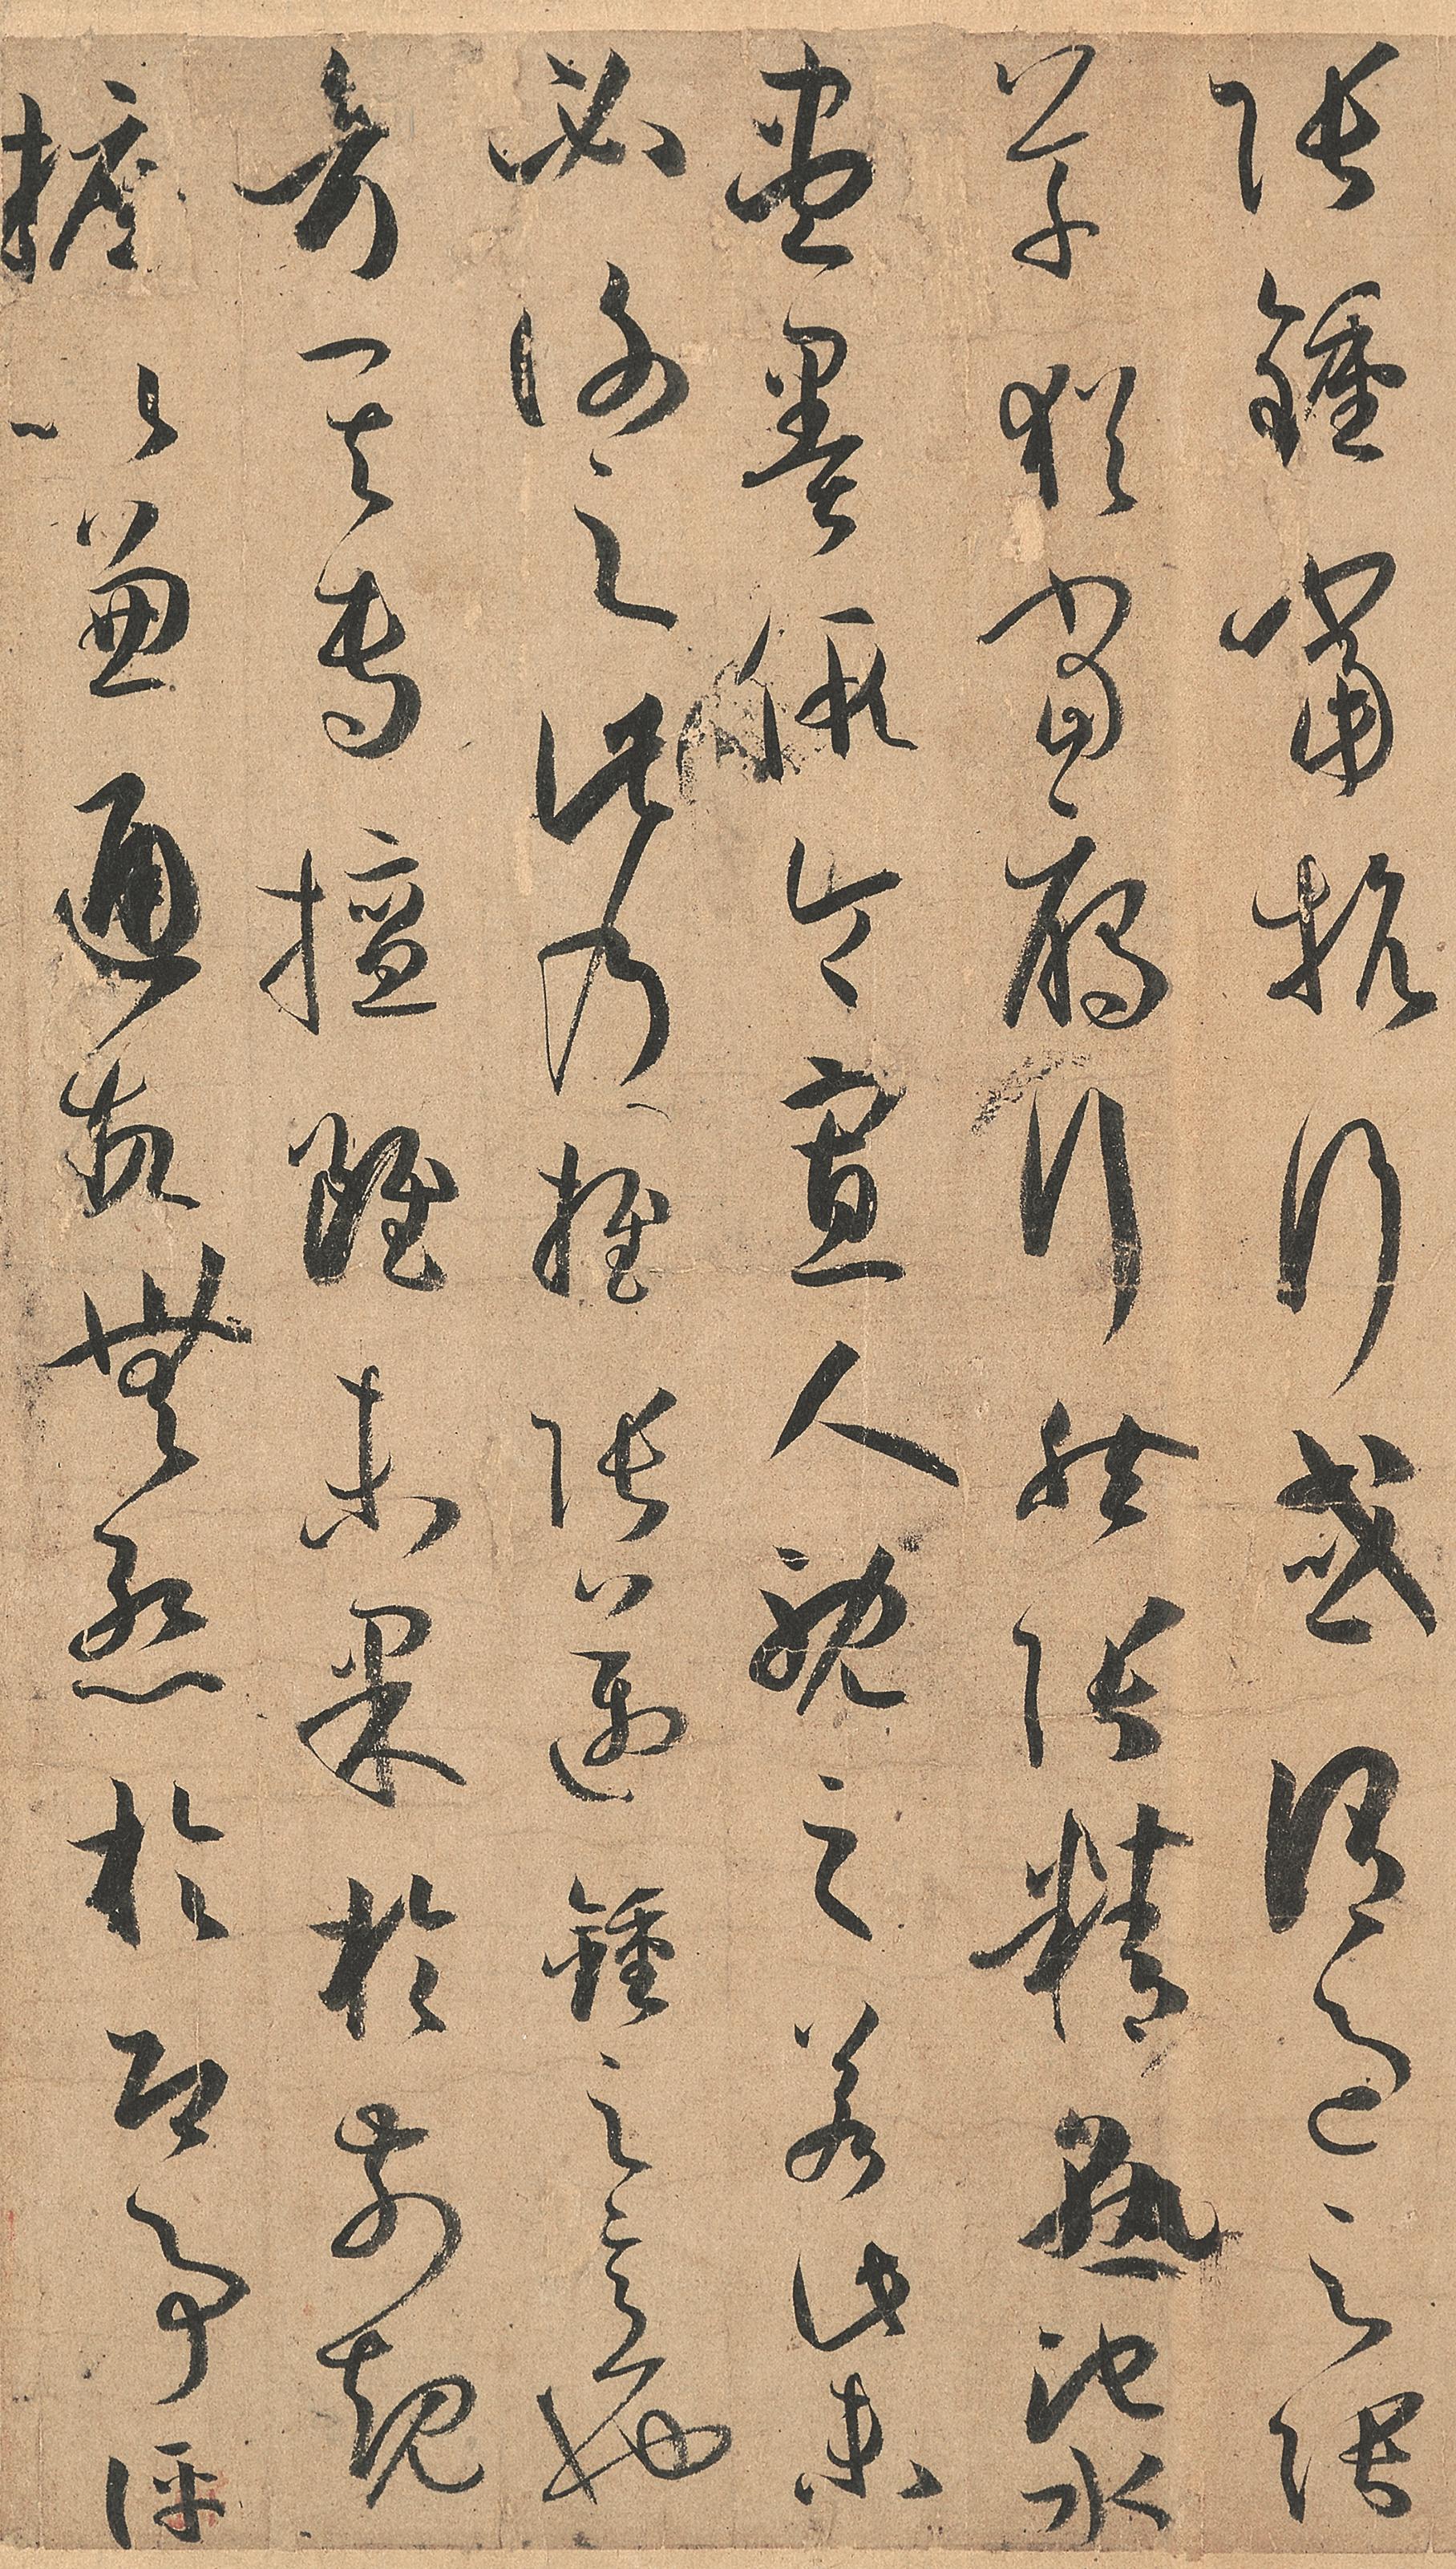 張鍾當抗行或謂過之張
草猶當雁行然張精熟池水
盡墨假令寡人耽之若此未
必謝之此乃推張邁鍾之意也
考其專擅雖未果於前規
摭以兼通故無慙於即事評